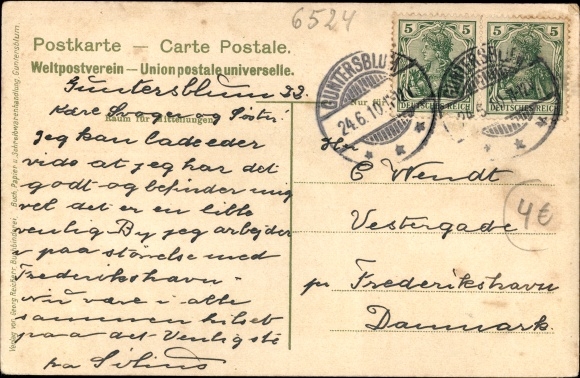 6524
Postkarte – Carte Postale.
Weltpostverein – Union postale universelle.
Guntersblum 23.
Kære Svoger og Søster
Raum für Mitteilungen
Jeg kan lade eder
vide at jeg har det
godt og befinder mig
vel det er en lille
venlig By jeg arbejder
i paa størelse med
Frederikshavn
Nu være i alle
sammen hilset
paa det Venligste
fra
5 5
DEUTSCHES REICH
5 5
DEUTSCHES REICH
GUNTERSBLUM
24.6.10
GUNTERSBLUM
24.6
Nur für
Hr
C Wendt
Vestergade
pr Frederikshavn
Danmark.
4€
Verlag von Georg Reichert, Buchbinderei, Buch, Papier u. Schreibwarenhandlung, Guntersblum.